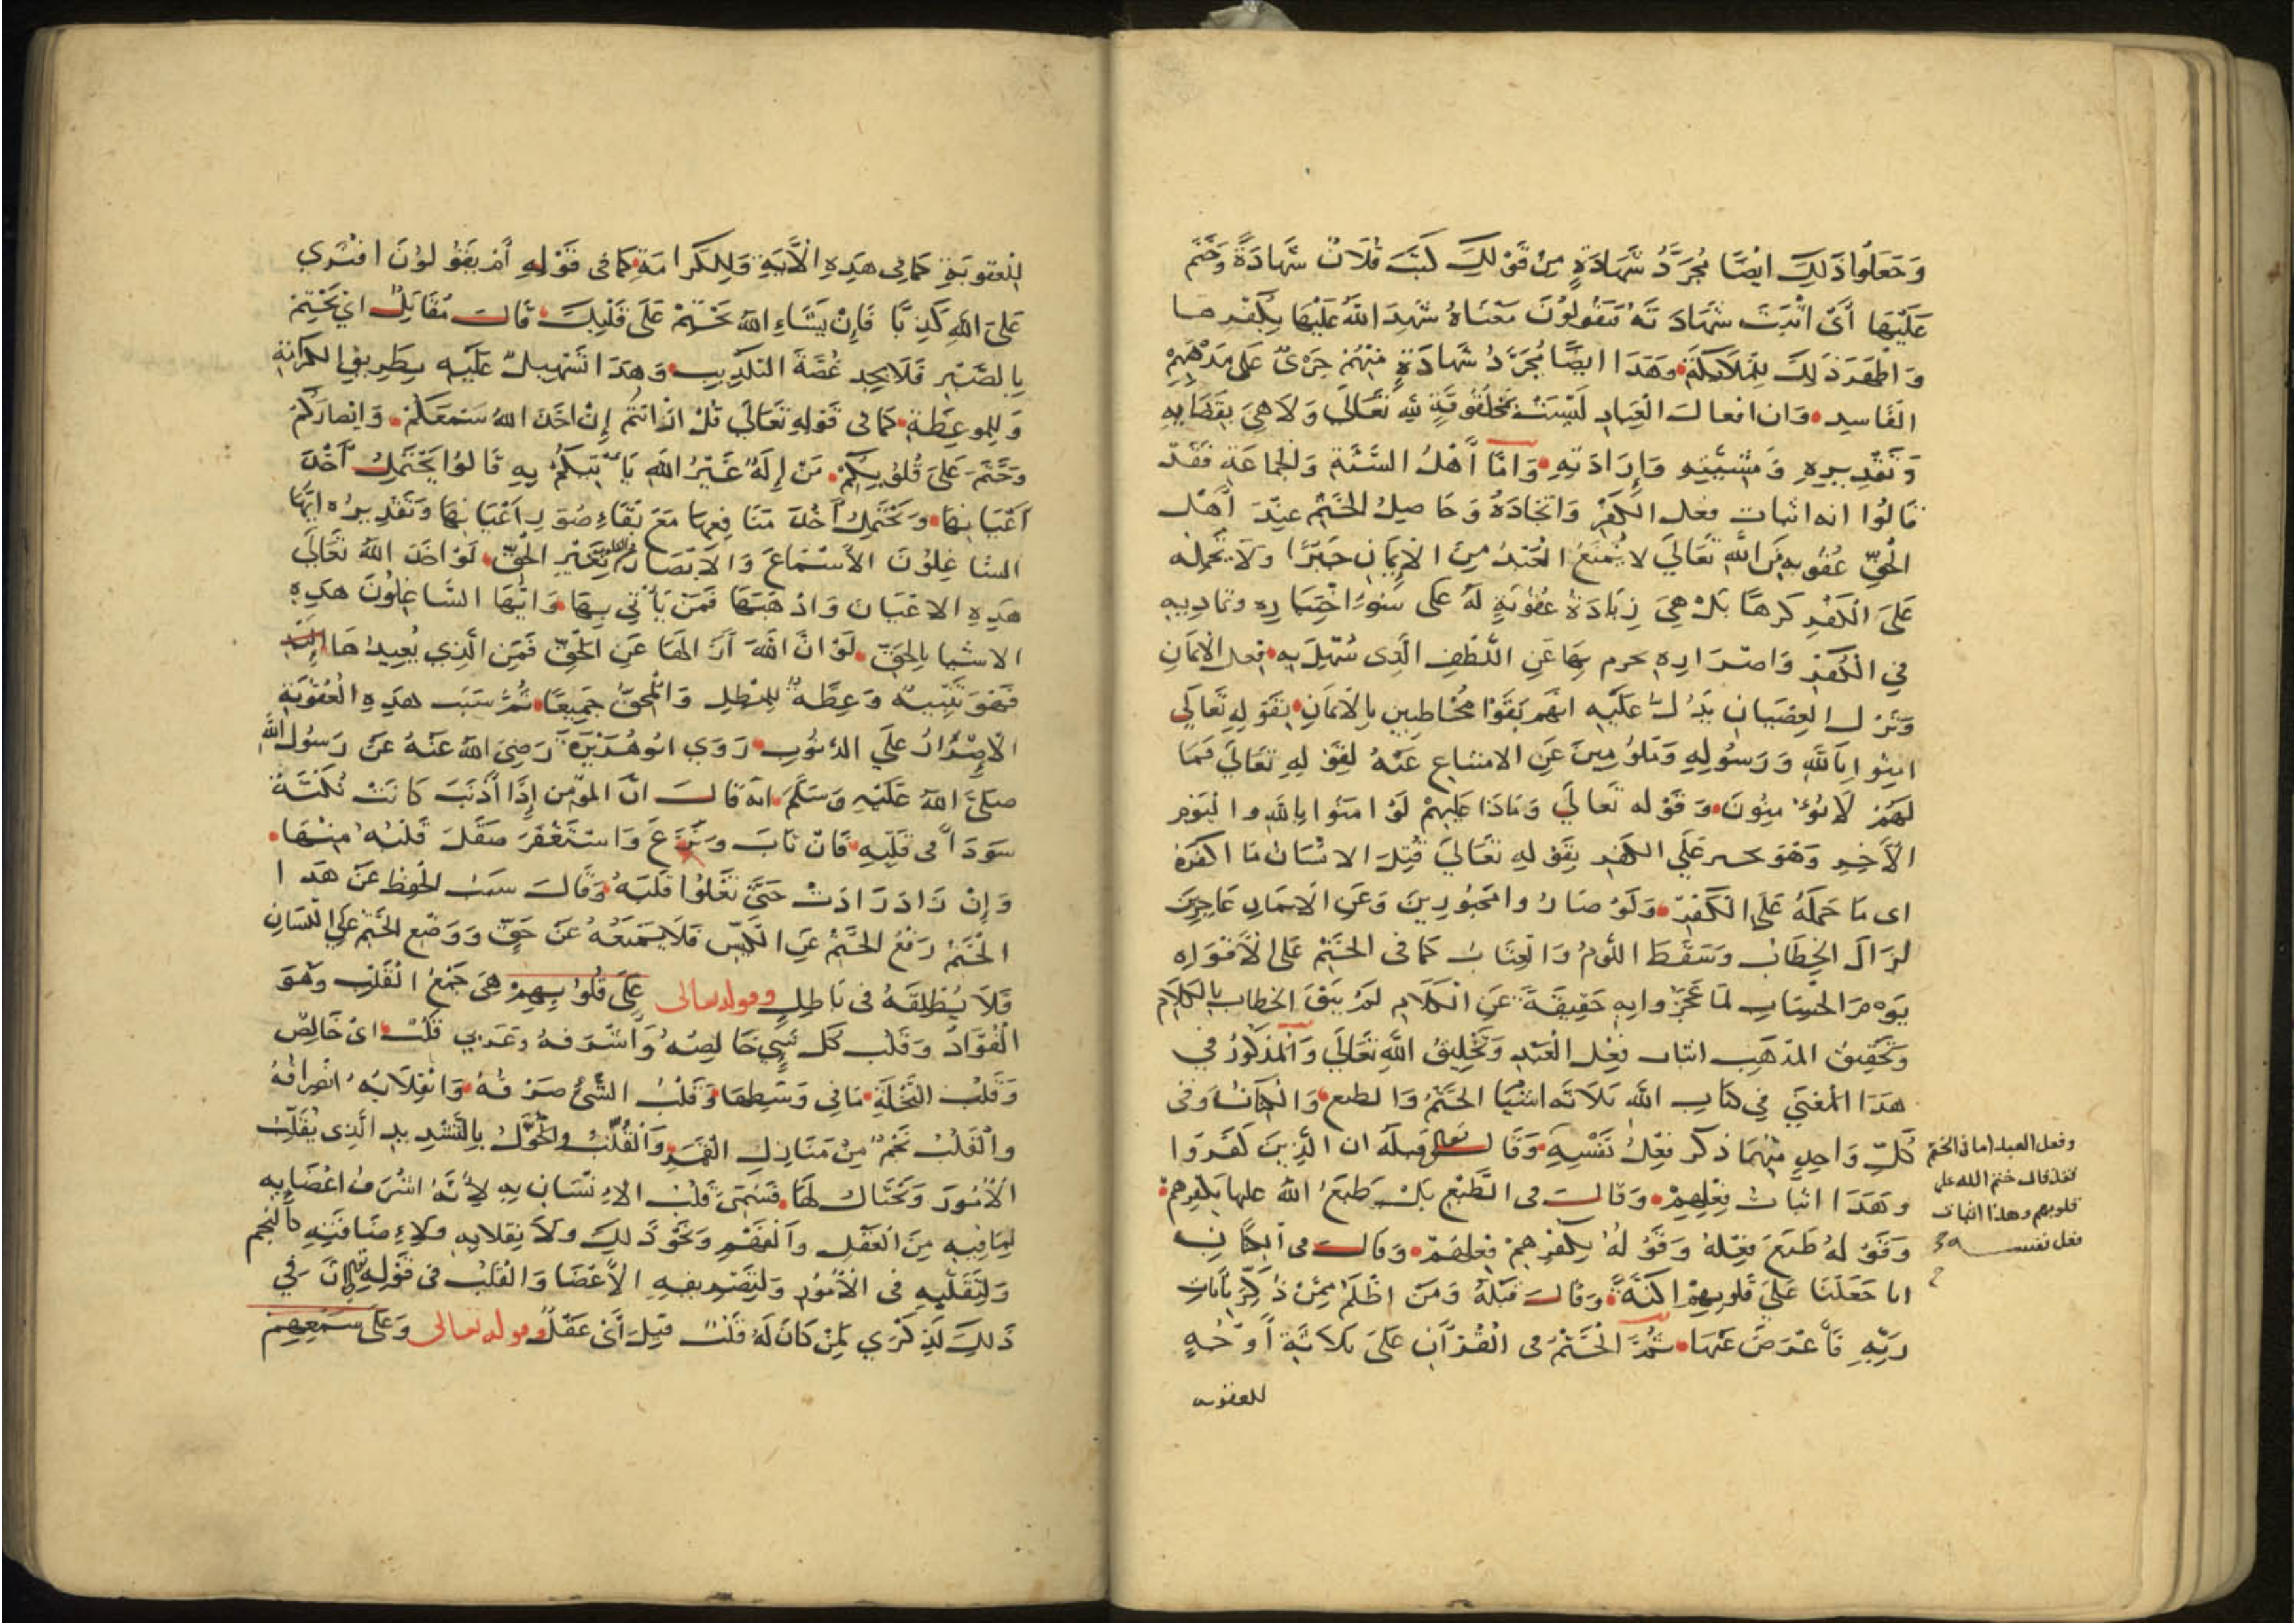 وَجَعَلُوا ذَلِكَ ايْضًا مُجَرَّدَ شَهَادَةٍ مِنْ قَوْلِكَ كَتَبَ فُلَانٌ شَهَادَةً وَخَتَمَ
عَلَيْهَا أَىْ اثْبَتَ شَهَادَتَهُ مَعْنَاهُ شَهِدَ اللهُ عَلَيْهَا بِكُفْرِهَا
وَاظْهَرَ ذَلِكَ لِلْمَلَائِكَةِ وَهَذَا ايضًا مُجَرَّدُ شَهَادَةٍ مِنْهُمْ جَرْىٌ عَلَى مَذْهَبِهِمْ
الْفَاسِدِ وَان افعالَ الْعِبَادِ لَيْسَتْ بِمَخْلُوقَةٍ لِلَّهِ تَعَالَى وَلَا هِىَ بِقَضَايِهِ
وَتَقْدِيرِهِ وَمَشِيَّتِهِ وَإِرَادَتِهِ وَامَّا أَهْلُ السُّنَّةِ وَالْجَمَاعَةِ فَقَدْ
قَالُوا انه اثبات فعل الْكُفْرِ وَايجَادُهُ وَحَاصِلُ الْخَتْمِ عِنْدَ أَهْلِ
الْحَقِّ عُقُوبَةٌ مِنَ اللَّهِ تَعَالَي لا تَمْنَعُ الْعَبْدَ مِنَ الْإِيمَانِ جَبْرًا وَلَا تَحْمِلُهُ
عَلَى الْكُفْرِ كَرْهًا بَلْ هِىَ زِيَادَةُ عُقُوبَةٍ لَهُ عَلَى سُوءِ اخْتِيَارِهِ وَتَمَادِيهِ
فِي الْكُفْرِ وَاصْرَارِهِ يحرم بِهَا عَنِ اللُّطْفِ الَّذِى سُهِّلَ بِهِ فِعل الْإِيمَانِ
وَتَرْك الْعِصْيَانِ يَدُلُّ عَلَيْهِ انَّهُمْ بَقَوْا مُخَاطَبِينَ بِالْإِيمَانِ بِقَوْلِهِ تَعَالَي
امِنُوا بِاللَّهِ وَرَسُولِهِ وَمَلُومِينَ عَنِ الامتناع عَنْهُ لِقَوْلِهِ تَعَالَي فَمَا
لَهُمْ لَا يُؤْمِنُونَ وَقَوْله تَعالَي وَمَاذَا عَلَيْهِمْ لَوْ امَنُوا بِاللَّهِ وَالْيَوْمِ
الْآخِرِ وَهُوَ عَلَي الْكُفْرِ بِقَوْلِهِ تَعَالَي قُتِلَ الْانْسَانُ مَا اكْفَرَهُ
اى مَا حَمَلَهُ عَلَى الْكُفْرِ وَلَوْ صَارُوا مَجْبُورِينَ وَعَنِ الْايمَانِ عَاجِزِينَ
لَزَالَ الْخِطَابُ وَسَقَطَ اللَّوْمُ وَالْعِتَابُ كَمَا فى الْخَتْمِ عَلَى الْأَفْوَاهِ
يَوْمَ الْحِسَابِ لَمَّا عَجَزُوا بِهِ حَقِيقَةً عَنِ الْكَلَامِ لَمْ يَبْقَ الخطاب بِالْكَلَامِ
وَتَحْقِيقُ الْمَذْهَبِ اثبات فِعْلِ الْعَبْدِ وَتَخْلِيقُ اللَّهِ تَعَالَي وَالْمَذْكُورُ فِي
هَذَا الْمَعْنَى فِي كِتَابِ اللَّهِ ثَلَاثَة اشْيَا الْخَتْمُ وَالطبع وَالْاكْنَانُ وَفى
كُلِّ وَاحِدٍ مِنْهَا ذكر فِعْلُ نَفْسِهِ وَقَالَ تعالى قَبْلَهُ ان الَّذِينَ كَفَرُوا
وهَذَا اثْبَات فِعْلِهِمْ وَقَالَ فى الطَّبْعِ بَلْ طَبَعَ اللهُ عليها بِكُفْرِهِمْ
وَقَوْلهُ طَبَعَ فِعْلُهُ وَقَوْلهُ بِكُفْرِهِمْ فِعْلُهُمْ وَقَالَ فى الْاكْنَانِ
انا جَعَلْنَا عَلَى قُلُوبِهِمْ اكِنَّةً وَقَالَ قَبْلَهُ وَمَنْ اظْلَمُ مِمَّنْ ذُكِّرَ بِآيَاتِ
رَبِّهِ فَأَعْرَضَ عَنْهَا ثُمَّ الْخَتْمُ فى الْقُرْآنِ عَلَى ثَلَاثَةِ أَوْجُهٍ
للعقوبه
وفعل العبد اما فى الختم
فقد قال ختم الله على
قلوبهم وهذا اثبات
فعل نفسه
لِلْعُقُوبَةِ كَمَا فِى هَذِهِ الْآيَةِ وَلِلْكَرَامَةِ كَمَا فى قَوْلِهِ أَمْ يَقُولُونَ افْتَرَي
عَلَى اللَّهِ كَذِبًا فَإِنْ يَشَاءِ اللهُ يَخْتِمْ عَلَى قَلْبِكَ قَالَ مُقَاتِلٌ اىْ يَخْتِمْ
بِالصَّبْرِ فَلَا يَجِدُ غُصَّةَ التَّكْذِيبِ وَهَذَا تَسْهِيلٌ عَلَيْهِ بِطَرِيقِ الْكَرَامَةِ
وَلِلْمَوعِظَةِ كَمَا فى قَوْلِهِ تَعَالَي قُلْ ارَايْتُمْ إِنْ اخَذَ اللهُ سَمْعَكُمْ وَابْصَارَكُمْ
وَخَتَمَ عَلَى قُلُوبِكُمْ مَنْ إِلَهٌ غَيْرُ اللهِ يَأْتِيكُمْ بِهِ قَالُوا يَحْتَمِلُ أَخْذَ
اعْيَانِهَا وَيَحْتَمِلُ أَخْذَ مَنَافِعِهَا مَعَ بَقَاءِ صُوَرِ اعْيَانِهَا وَتَقْدِيرُهُ ايُّهَا
الشَّاغِلُونَ الْاسْمَاعَ وَالْابْصَارَ والقلوب بِغَيْرِ الْحَقِّ لَوْ اخَذَ اللهُ تَعَالَي
هَذِهِ الاعْيَانَ وَاذْهَبَهَا فَمَنْ يَأْتِي بِهَا وَايُّهَا الشَّاغِلُونَ هَذِهِ
الاشيا بِالْحَقِّ لَوْ انَّ اللهَ ازَالَهَا عَنِ الْحَقِّ فَمَنِ الَّذِي يُعِيدُهَا
فَهُوَ تَنْبِيهٌ وَعِظَةٌ لِلْمُبْطِلِ وَالْمُحِقِّ جَمِيعًا ثُمَّ سَبَب هَذِهِ الْعُقُوبَةِ
الْإِصْرَارُ عَلَي الذُّنُوبِ رَوَي ابُو هُرَيْرَةَ رَضِيَ اللهُ عَنْهُ عَنْ رَسُولِ اللهِ
صَلَّى اللهُ عَلَيْهِ وَسَلَّمَ انه قَالَ انَّ الْمُؤْمِن إِذَا أَذْنَبَ كَانَتْ نُكْتَةٌ
سَوْدَاً فى قَلْبِهِ فَانْ تَابَ وَنَزَعَ وَاسْتَغْفَرَ صَقَلَ قَلْبُهُ مِنْهَا
وَإِنْ زَادَ زَادَتْ حَتَّى تَعْلُوا قَلْبَهُ وَقَالَ عَنْ هَذَا
الْخَتْمِ رَفْعُ الْخَتْمِ عَنِ الْكِيسِ فَلَا يَمْنَعُهُ عَنْ حَقٍّ وَوَضْع الْخَتْمِ عَلَى اللِّسَانِ
فَلَا يُطْلِقُهُ فى بَاطِلٍ وقوله تعالى عَلَى قُلُوبِهِمْ هِىَ جَمْعُ الْقَلْبِ وَهُوَ
الْفُوَادُ وَقَلْب كُلِّ شَيْءٍ خَالِصُهُ وَأَشْرَفُهُ وَعَرَبِي قَلْبٌ اىْ خَالِصٌ
وَقَلْبُ النَّخْلَةِ مَا فِي وَسَطِهَا وَقَلْبُ الشَّيْءِ صَرْفُهُ وَانْقِلَابُهُ انْصِرَافُهُ
وَالْقَلْبُ نَجْمٌ مِنْ مَنَازِلِ الْقَمَرِ وَالْقُلَّبُ وَالْحُوَّلُ بِالتَّشْدِيدِ الَّذِى يُقَلِّبُ
الْأُمُورَ وَيَحْتَالُ لَهَا فَسُمِّيَ قَلْبُ الْإِنْسَانِ بِهِ لِأَنَّهُ اشْرَفُ اعْضَايِهِ
لِمَا فِيهِ مِنَ الْعَقْلِ وَالْفَهْمِ وَنَحْوِ ذَلِكَ وَلانْقِلَابِهِ وَلِإِضَافَتِهِ كَالنَّجْمِ
وَلِتَقَلُّبِهِ فى الْأُمُورِ وَلِتَصْرِيفِهِ الْأَعْضَا وَالْقَلْبُ فى قَوْلِهِ تعالى إِنَّ فِي
ذَلِكَ لَذِكْرَي لِمَنْ كَانَ لَهُ قَلْبٌ قِيلَ أَىْ عَقْلٌ وقوله تعالى وَعَلَى سَمْعِهِمْ